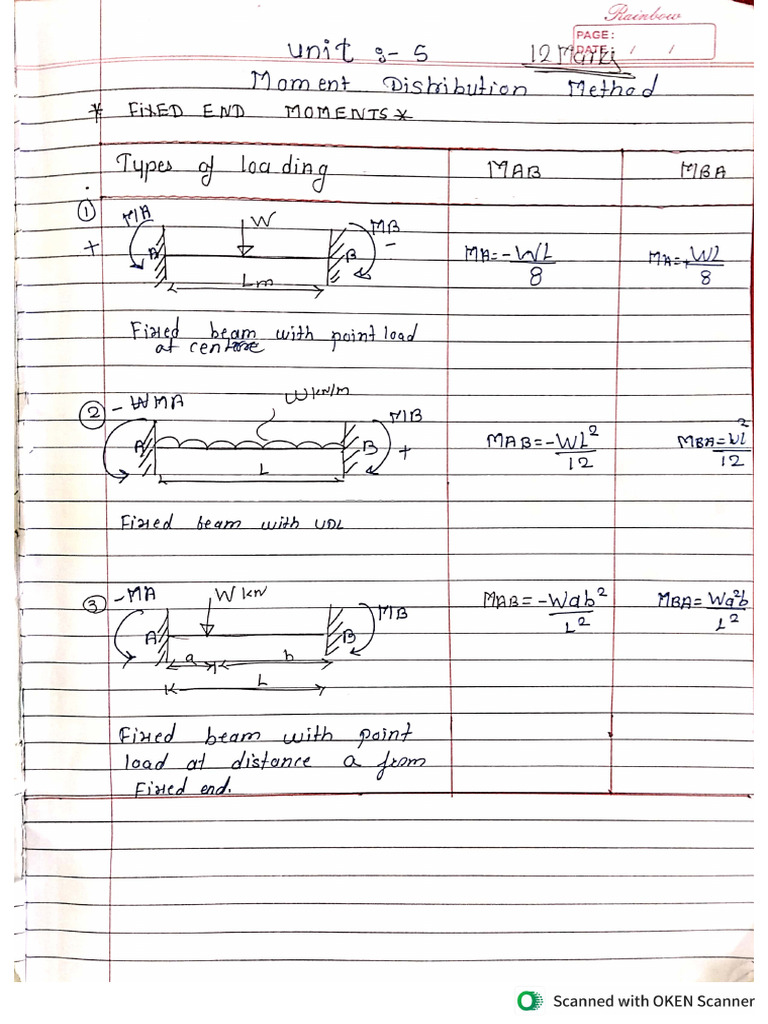 Rainbow
PAGE:
DATE: / /
Unit :- 5 12 Marks
Moment Distribution Method
* FIXED END MOMENTS *
Types of loading MAB MBA
① MA W MB
+ A B - MA = -WL/8 MA = +WL/8
Lm
Fixed beam with point load
at centre
② -WMA W KN/M MB
A B + MAB = -WL²/12 MBA = WL²/12
L
Fixed beam with UDL
③ -MA W KN MB MAB = -Wab²/L² MBA = Wa²b/L²
A B
a b
L
Fixed beam with point
load at distance a from
Fixed end.
Scanned with OKEN Scanner